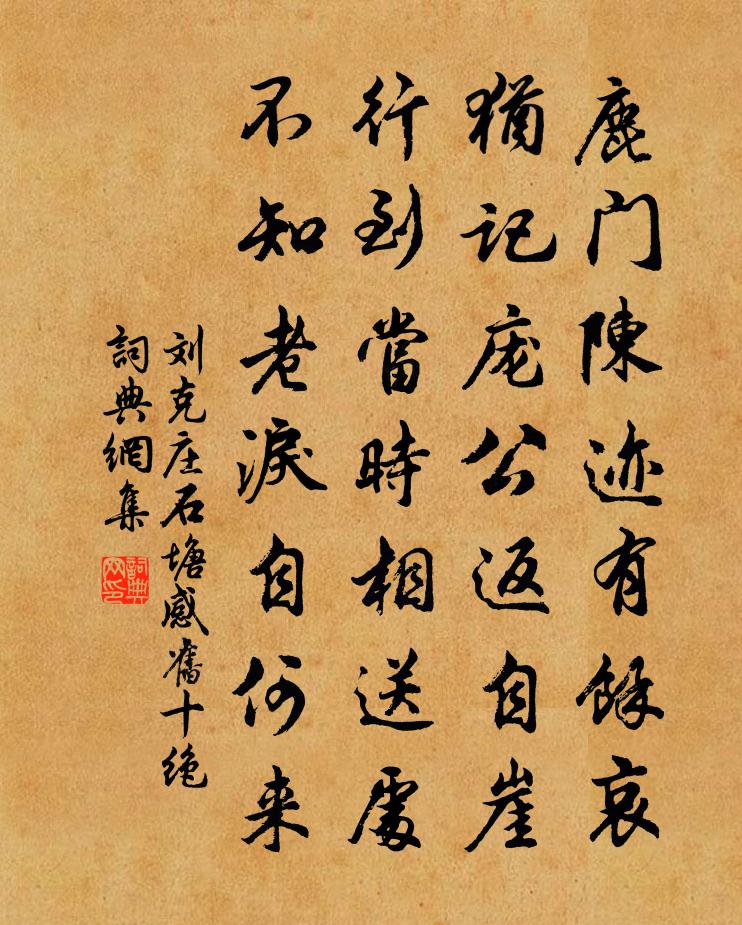 鹿门陳迹有餘哀
猶记庞公返自崖
行到當時相送處
不知老淚自何来
刘克庄石塘感舊十绝
詞典網集
詞典網印